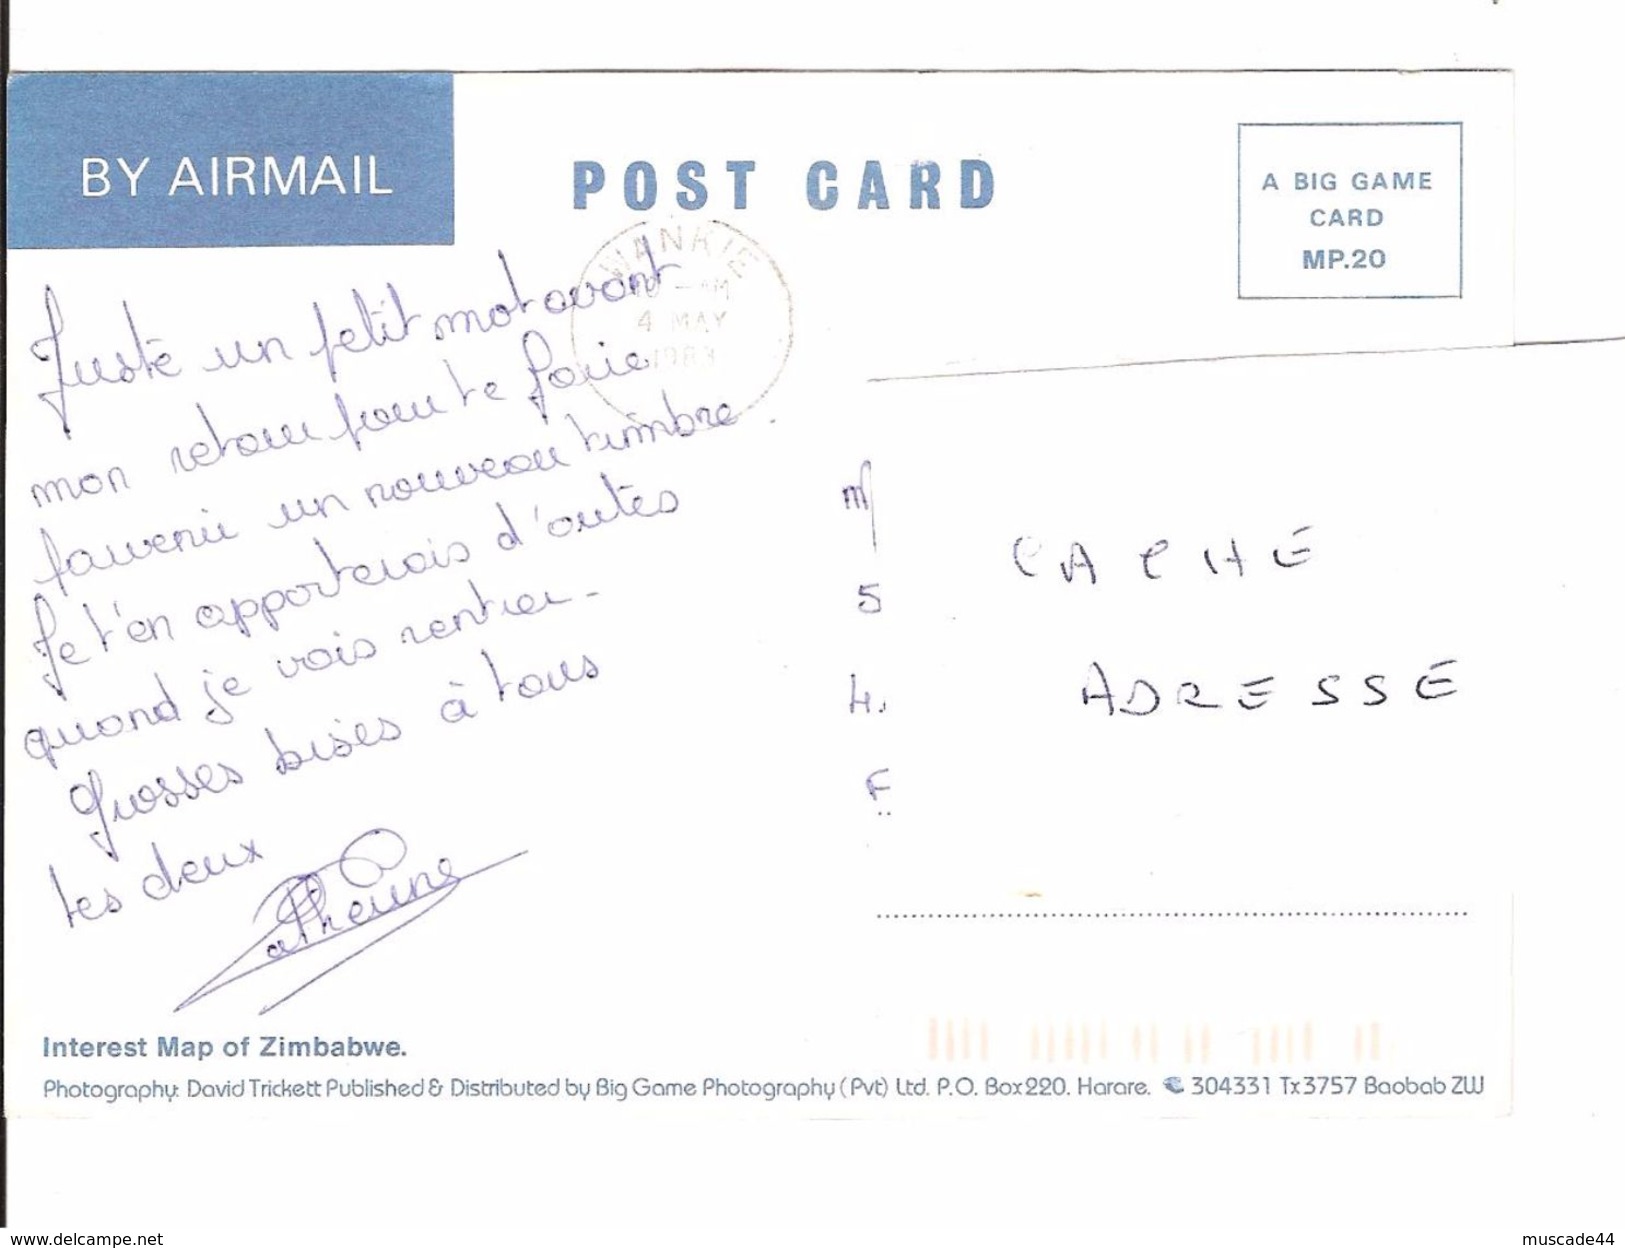 BY AIRMAIL
POST CARD
A BIG GAME
CARD
MP.20
WANKIE
- AM
4 MAY
1983
Juste un petit mot avant
mon retour pour te faire
parvenir un nouveau timbre.
Je t'en apporterais d'autes
quand je vais rentrer-
Grosses bises à tous
les deux
Catherine
m
5
4.
F
CACHE
ADRESSE
Interest Map of Zimbabwe.
Photography: David Trickett Published & Distributed by Big Game Photography (Pvt) Ltd. P.O. Box 220. Harare. 304331 Tx3757 Baobab ZW
www.delcampe.net
muscade44